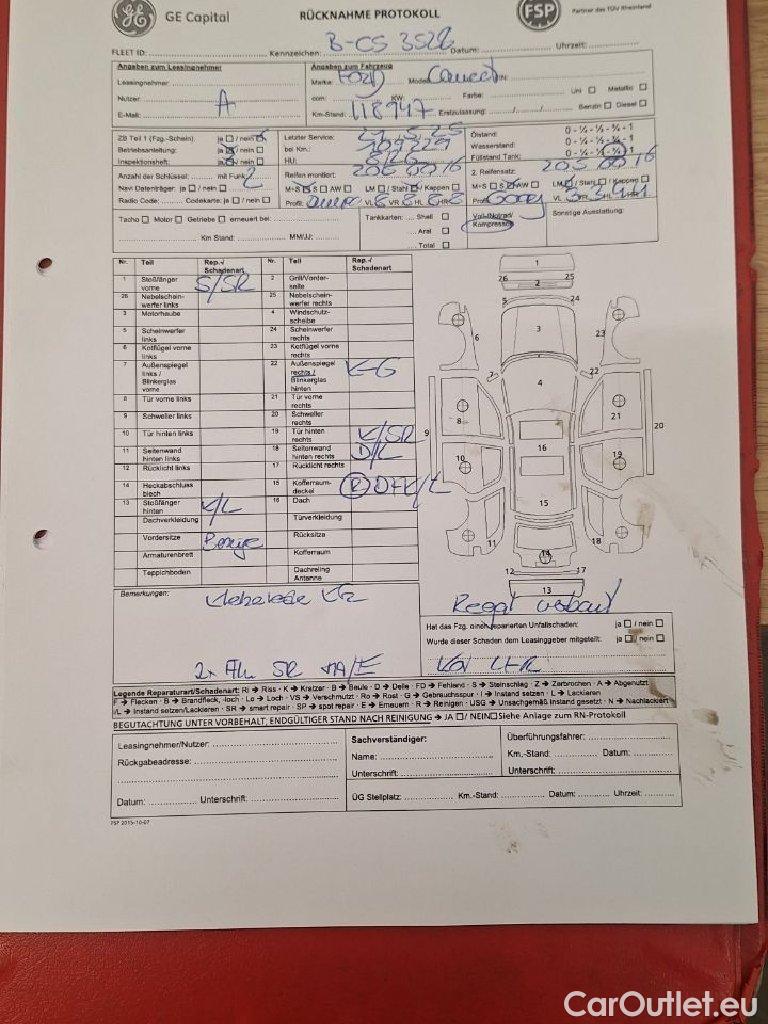 GE Capital
RÜCKNAHME PROTOKOLL
FSP
Partner des TÜV Rheinland
FLEET ID:
Kennzeichen: B-CS 3526
Datum:
Uhrzeit:
Angaben zum Leasingnehmer
Leasingnehmer:
Nutzer: A
E-Mail:
Angaben zum Fahrzeug
Marke: FORD
Modell: Connect
Farbe:
Uni ☐ Metallic ☐
Km-Stand: 118947
Erstzulassung:
Benzin ☐ Diesel ☐
ZB Teil 1 (Fzg.-Schein): ja ☐ / nein
Betriebsanleitung: nein ☐
Inspektionsheft: nein ☐
Anzahl der Schlüssel: mit Funk: 2
Navi Datenträger: ja ☐ / nein ☐
Radio Code: Codekarte: ja ☐ / nein ☐
Letzter Service:
bei Km.: 109229
HU: 8/26
Reifen montiert:
M+S S ☐ AW ☐
LM ☐ / Stahl / Kappen ☐
Profil: VL 8 VR 8 HL 8 HR 8
Ölstand: 0 - ¼ - ½ - ¾ - 1
Wasserstand: 0 - ¼ - ½ - ¾ - 1
Füllstand Tank: 0 - ¼ - ½ - ¾ - 1
2. Reifensatz:
Profil:
Tacho ☐ Motor ☐ Getriebe ☐ erneuert bei:
Km Stand: MM/JJ:
Tankkarten: Shell ☐
Aral ☐
Total ☐
Voll-/Notrad/
Kompressor
Sonstige Ausstattung:
Nr. Teil Rep.-/ Schadenart Nr. Teil Rep.-/ Schadenart
1 Stoßfänger vorne S/SR 2 Grill/Vorderseite
26 Nebelscheinwerfer links 25 Nebelscheinwerfer rechts
3 Motorhaube 4 Windschutzscheibe
5 Scheinwerfer links 24 Scheinwerfer rechts
6 Kotflügel vorne links 23 Kotflügel vorne rechts
7 Außenspiegel links / Blinkerglas vorne 22 Außenspiegel rechts / Blinkerglas hinten
8 Tür vorne links 21 Tür vorne rechts
9 Schweller links 20 Schweller rechts
10 Tür hinten links 19 Tür hinten rechts K/SR
11 Seitenwand hinten links 18 Seitenwand hinten rechts D/L
12 Rücklicht links 17 Rücklicht rechts
14 Heckabschlussblech 15 Kofferraumdeckel
13 Stoßfänger hinten K/L 16 Dach
Dachverkleidung Türverkleidung
Vordersitze Rücksitze
Armaturenbrett Kofferraum
Teppichboden Dachreling Antenne
1
26 25
2
5 24
3
6 23
7 22
4
8 21
9 20
16
10 19
15
11 18
14
12 17
13
Bemerkungen:
2x SR
Regal
Hat das Fzg. einen reparierten Unfallschaden: ja ☐ / nein ☐
Wurde dieser Schaden dem Leasinggeber mitgeteilt: ja ☐ / nein ☐
Legende Reparaturart/Schadenart: Ri → Riss - K → Kratzer - B → Beule - D → Delle - FD → Fehlend - S → Steinschlag - Z → Zerbrochen - A → Abgenutzt
F → Flecken - B → Brandfleck, -loch - Lo → Loch - VS → Verschmutzt - Ro → Rost - G → Gebrauchsspur - I → Instand setzen - L → Lackieren
I/L → Instand setzen/Lackieren - SR → smart repair - SP → spot repair - E → Erneuern - R → Reinigen - USG → Unsachgemäß instand gesetzt - N → Nachlackiert
BEGUTACHTUNG UNTER VORBEHALT; ENDGÜLTIGER STAND NACH REINIGUNG → JA ☐ / NEIN ☐ Siehe Anlage zum RN-Protokoll
Leasingnehmer/Nutzer:
Rückgabeadresse:
Datum: Unterschrift:
Sachverständiger:
Name:
Unterschrift:
Überführungsfahrer:
Km.-Stand: Datum:
Unterschrift:
ÜG Stellplatz: Km.-Stand: Datum: Uhrzeit:
FSP 2015-10-07
CarOutlet.eu